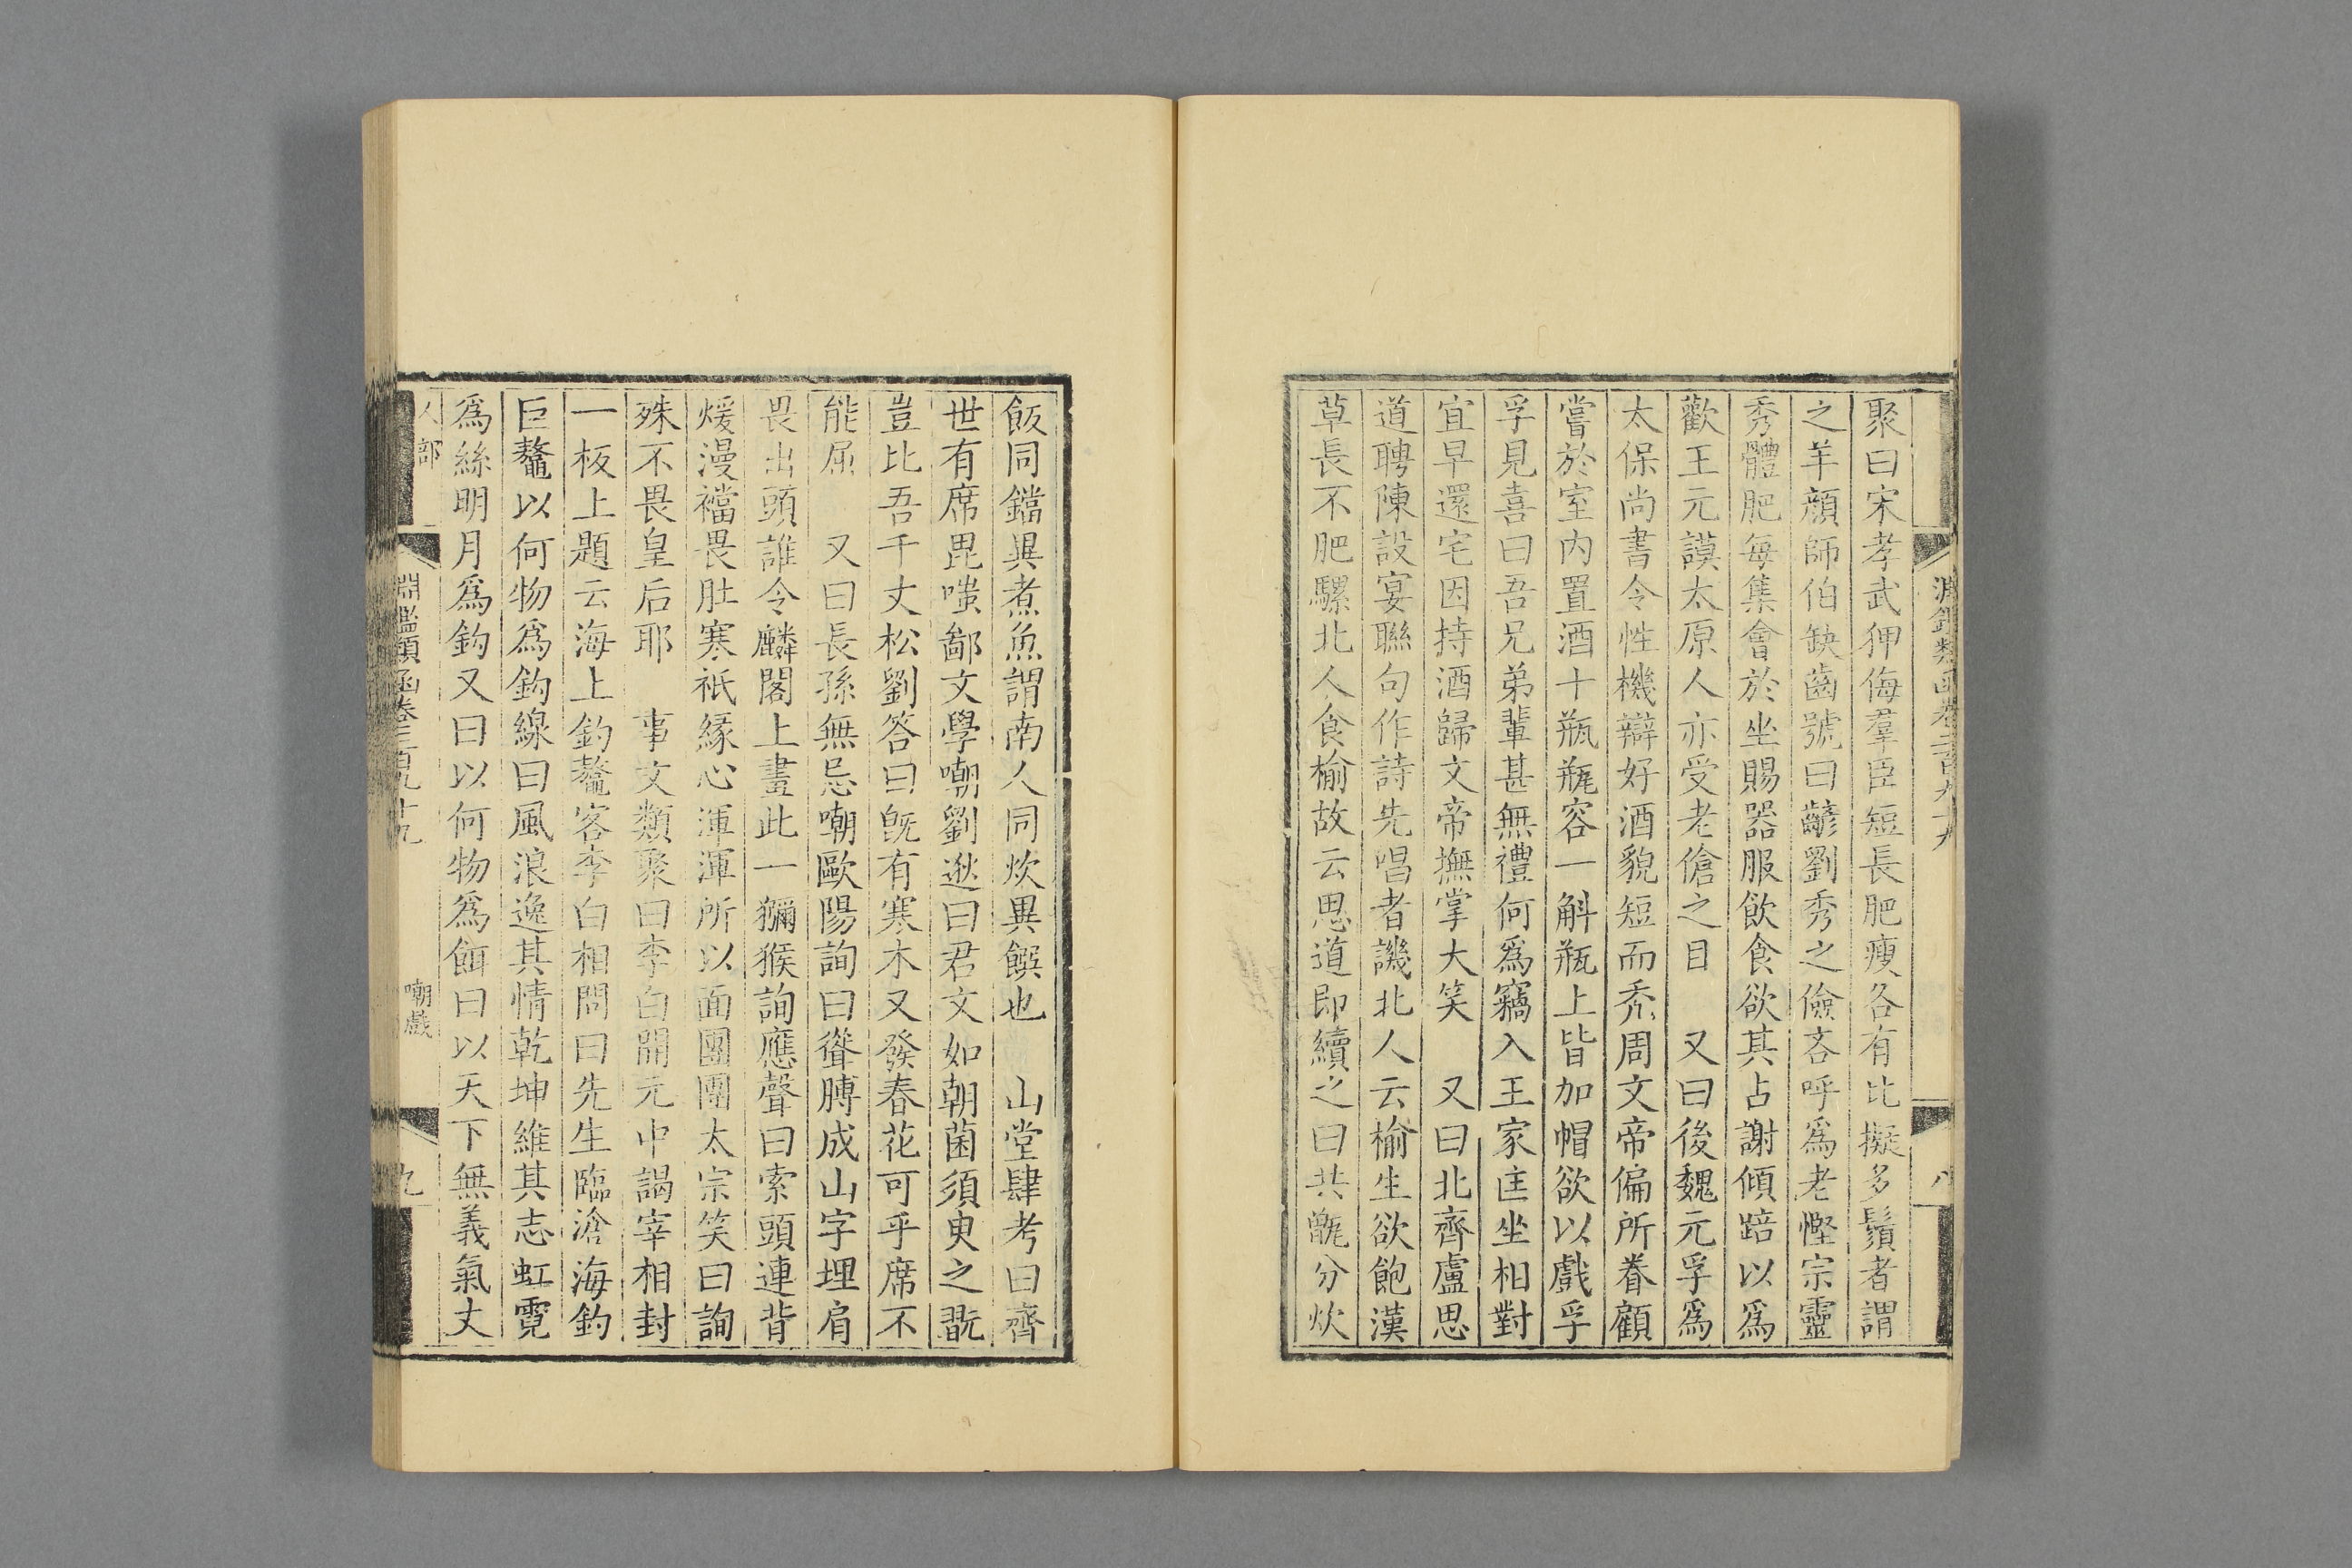 聚曰宋孝武狎侮羣臣短長肥瘦各有比擬多鬚者謂
之羊顔師伯缺齒號曰齴劉秀之儉吝呼爲老慳宗靈
秀體肥每集會於坐賜器服飲食欲其占謝傾踣以爲
歡王元謨太原人亦受老傖之目　又曰後魏元孚爲
太保尚書令性機辯好酒貌短而禿周文帝偏所眷顧
嘗於室内置酒十瓶瓶容一斛瓶上皆加帽欲以戲孚
孚見喜曰吾兄弟輩甚無禮何爲竊入王家匡坐相對
宜早還宅因持酒歸文帝撫掌大笑　又曰北齊盧思
道聘陳設宴聯句作詩先唱者譏北人云榆生欲飽漢
草長不肥騾北人食榆故云思道即續之曰共甑分炊
飯同鐺異煮魚謂南人同炊異饌也　山堂肆考曰齊
世有席毘嗤鄙文學嘲劉逖曰君文如朝菌須臾之翫
豈比吾千丈松劉答曰旣有寒木又發春花可乎席不
能屈　又曰長孫無忌嘲歐陽詢曰聳膊成山字埋肩
畏出頭誰令麟閣上畫此一獼猴詢應聲曰索頭連背
煖漫襠畏肚寒祇緣心渾渾所以面團團太宗笑曰詢
殊不畏皇后耶　事文類聚曰李白開元中謁宰相封
一板上題云海上釣鼇客李白相問曰先生臨滄海釣
巨鼇以何物爲鈎線曰風浪逸其情乾坤維其志虹霓
爲絲明月爲鈎又曰以何物爲餌曰以天下無義氣丈
人部　淵鑑類函卷三百九十九　嘲戲　九